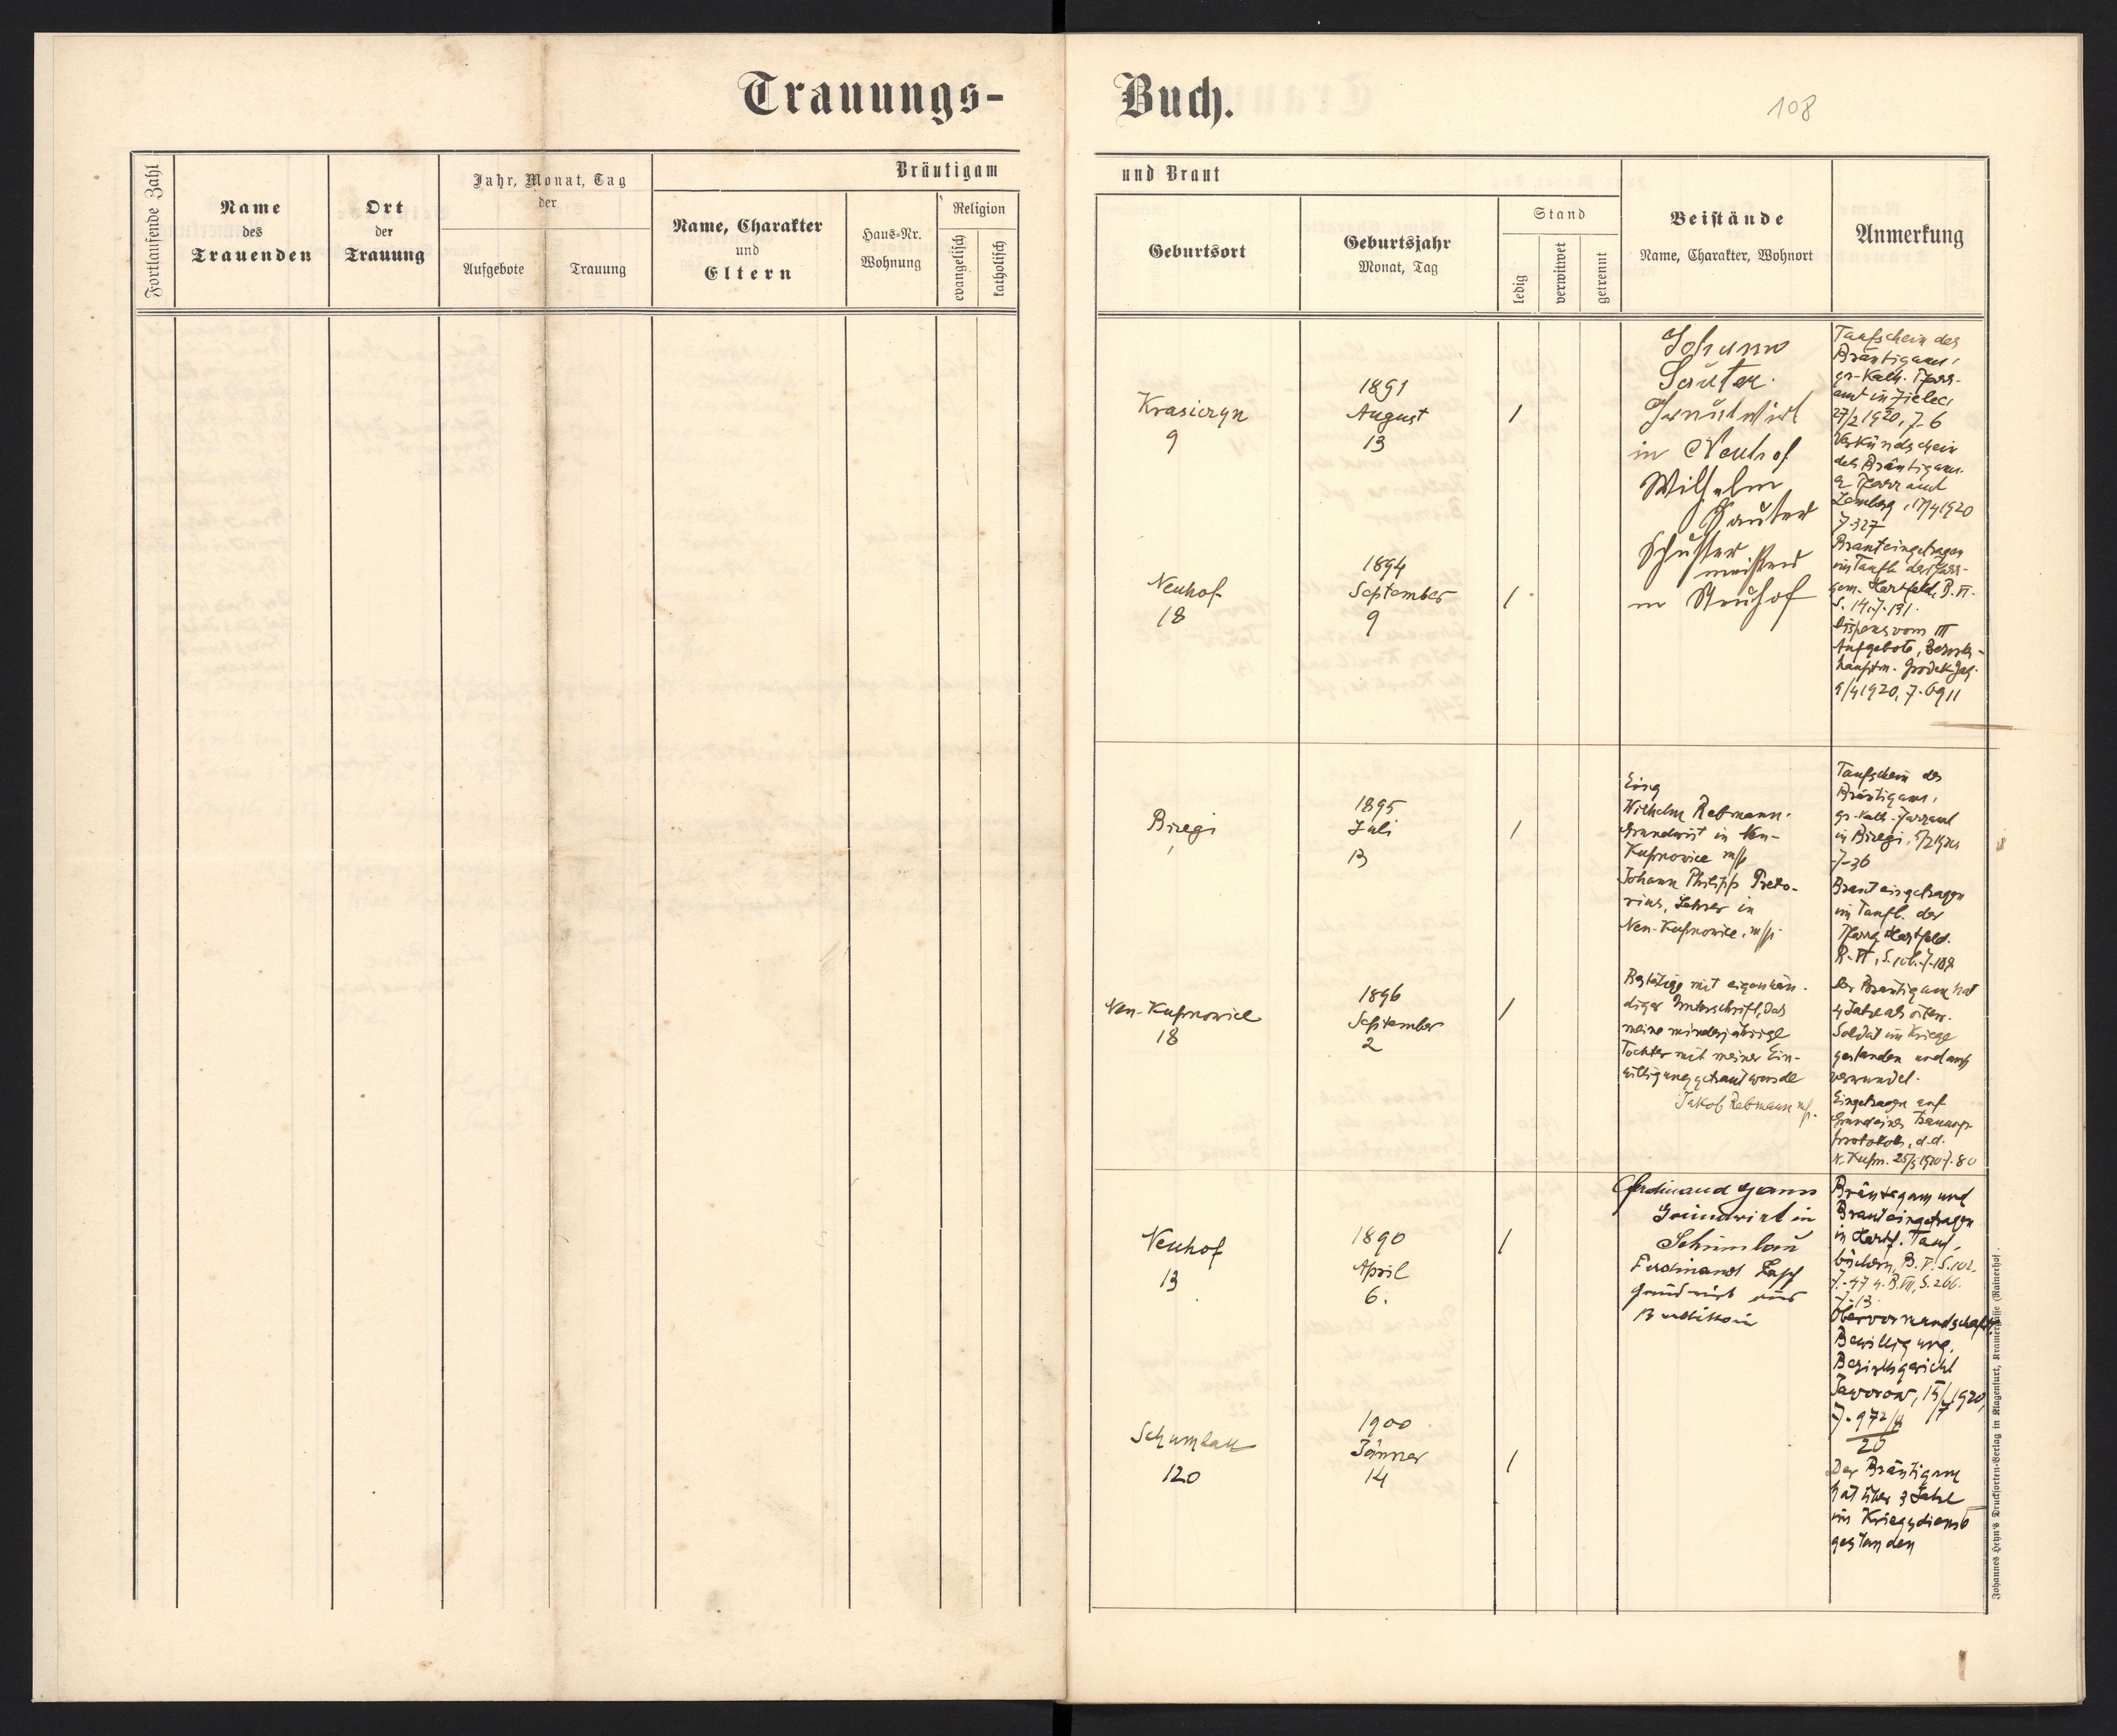 Trauungs-
Buch.
108
Fortlaufende Zahl
Name
des
Trauenden
Ort
der
Trauung
Jahr, Monat, Tag
der
Aufgebote
Trauung
Bräutigam
Name, Charakter
und
Eltern
Haus-Nr.
Wohnung
Religion
evangelisch
katholisch
und Braut
Geburtsort
Geburtsjahr
Monat, Tag
Stand
ledig
verwitwet
getrennt
Beistände
Name, Charakter, Wohnort
Anmerkung
Krasiczyn
9
1891
August
13
/
Neuhof
18
1894
September
9
/
Johann
Sauter
Grundwirt
in Neuhof
Wilhelm
Sauter
Schuster
meister
in Neuhof
Taufschein des
Bräutigams,
gr-Kath. Pfarr-
amt in
27/2 1920, 7-6
Verkündschein
des Bräutigams
Pfarramt
Lemberg, 17/4 1920
7-327
Braut eingetragen
im Taufb. der Pfarr-
gem. Hartfeld, B. VI.
S. 14, 7-131.
Dispens vom III
Aufgebote, Bezirks-
hauptm. Grodek Jag.
9/4 1920, 7-6911
Bizegi
1895
Juli
13
/
Neu-Kupnowice
18
1896
September
2
/
Wilhelm Rebmann
Grundwirt in Neu-
Kupnowice m/p
Johann Philipp Preto-
rius, Lehrer in
Neu-Kupnowice, m/p
Bestätige mit eigenhän-
diger Unterschrift, das
meine minderjährige
Tochter mit meiner Ein-
willigung getraut wurde
Jakob Rebmann m/p.
Taufschein des
Bräutigams,
gr-kath. Pfarramt
in Bizegi,
7-36
Braut eingetragen
im Taufb. der
Pfarrg Hartfeld.
Der Bräutigam hat
4 Jahre als öster.
Soldat im Kriege
gestanden und auch
verwundet.
Eingetragen auf
Grund eines Trauungs-
protokols, d.d.
N. Kupn. 25/5 1920 7-80
Neuhof
13
1890
April
6.
/
Schumlau
120
1900
Jänner
14
/
Ferdinand
Grundwirt in
Schumlau
Ferdinand
Grundwirt aus
Bräutigam und
Braut eingetragen
in Hartf. Tauf-
büchern, B. V. S. 102.
7-47 u. B. VII, S. 266.
7-13
Obervormundschaftl.
Bewilligung,
Bezirksgericht
Jaworow, 15/7 1920,
7-972/4
20
Der Bräutigam
hat über 3 Jahre
im Kriegsdienst
gestanden
Johannes Heyn's Drucksorten-Verlag in Klagenfurt, Kramergasse (Rainerhof).